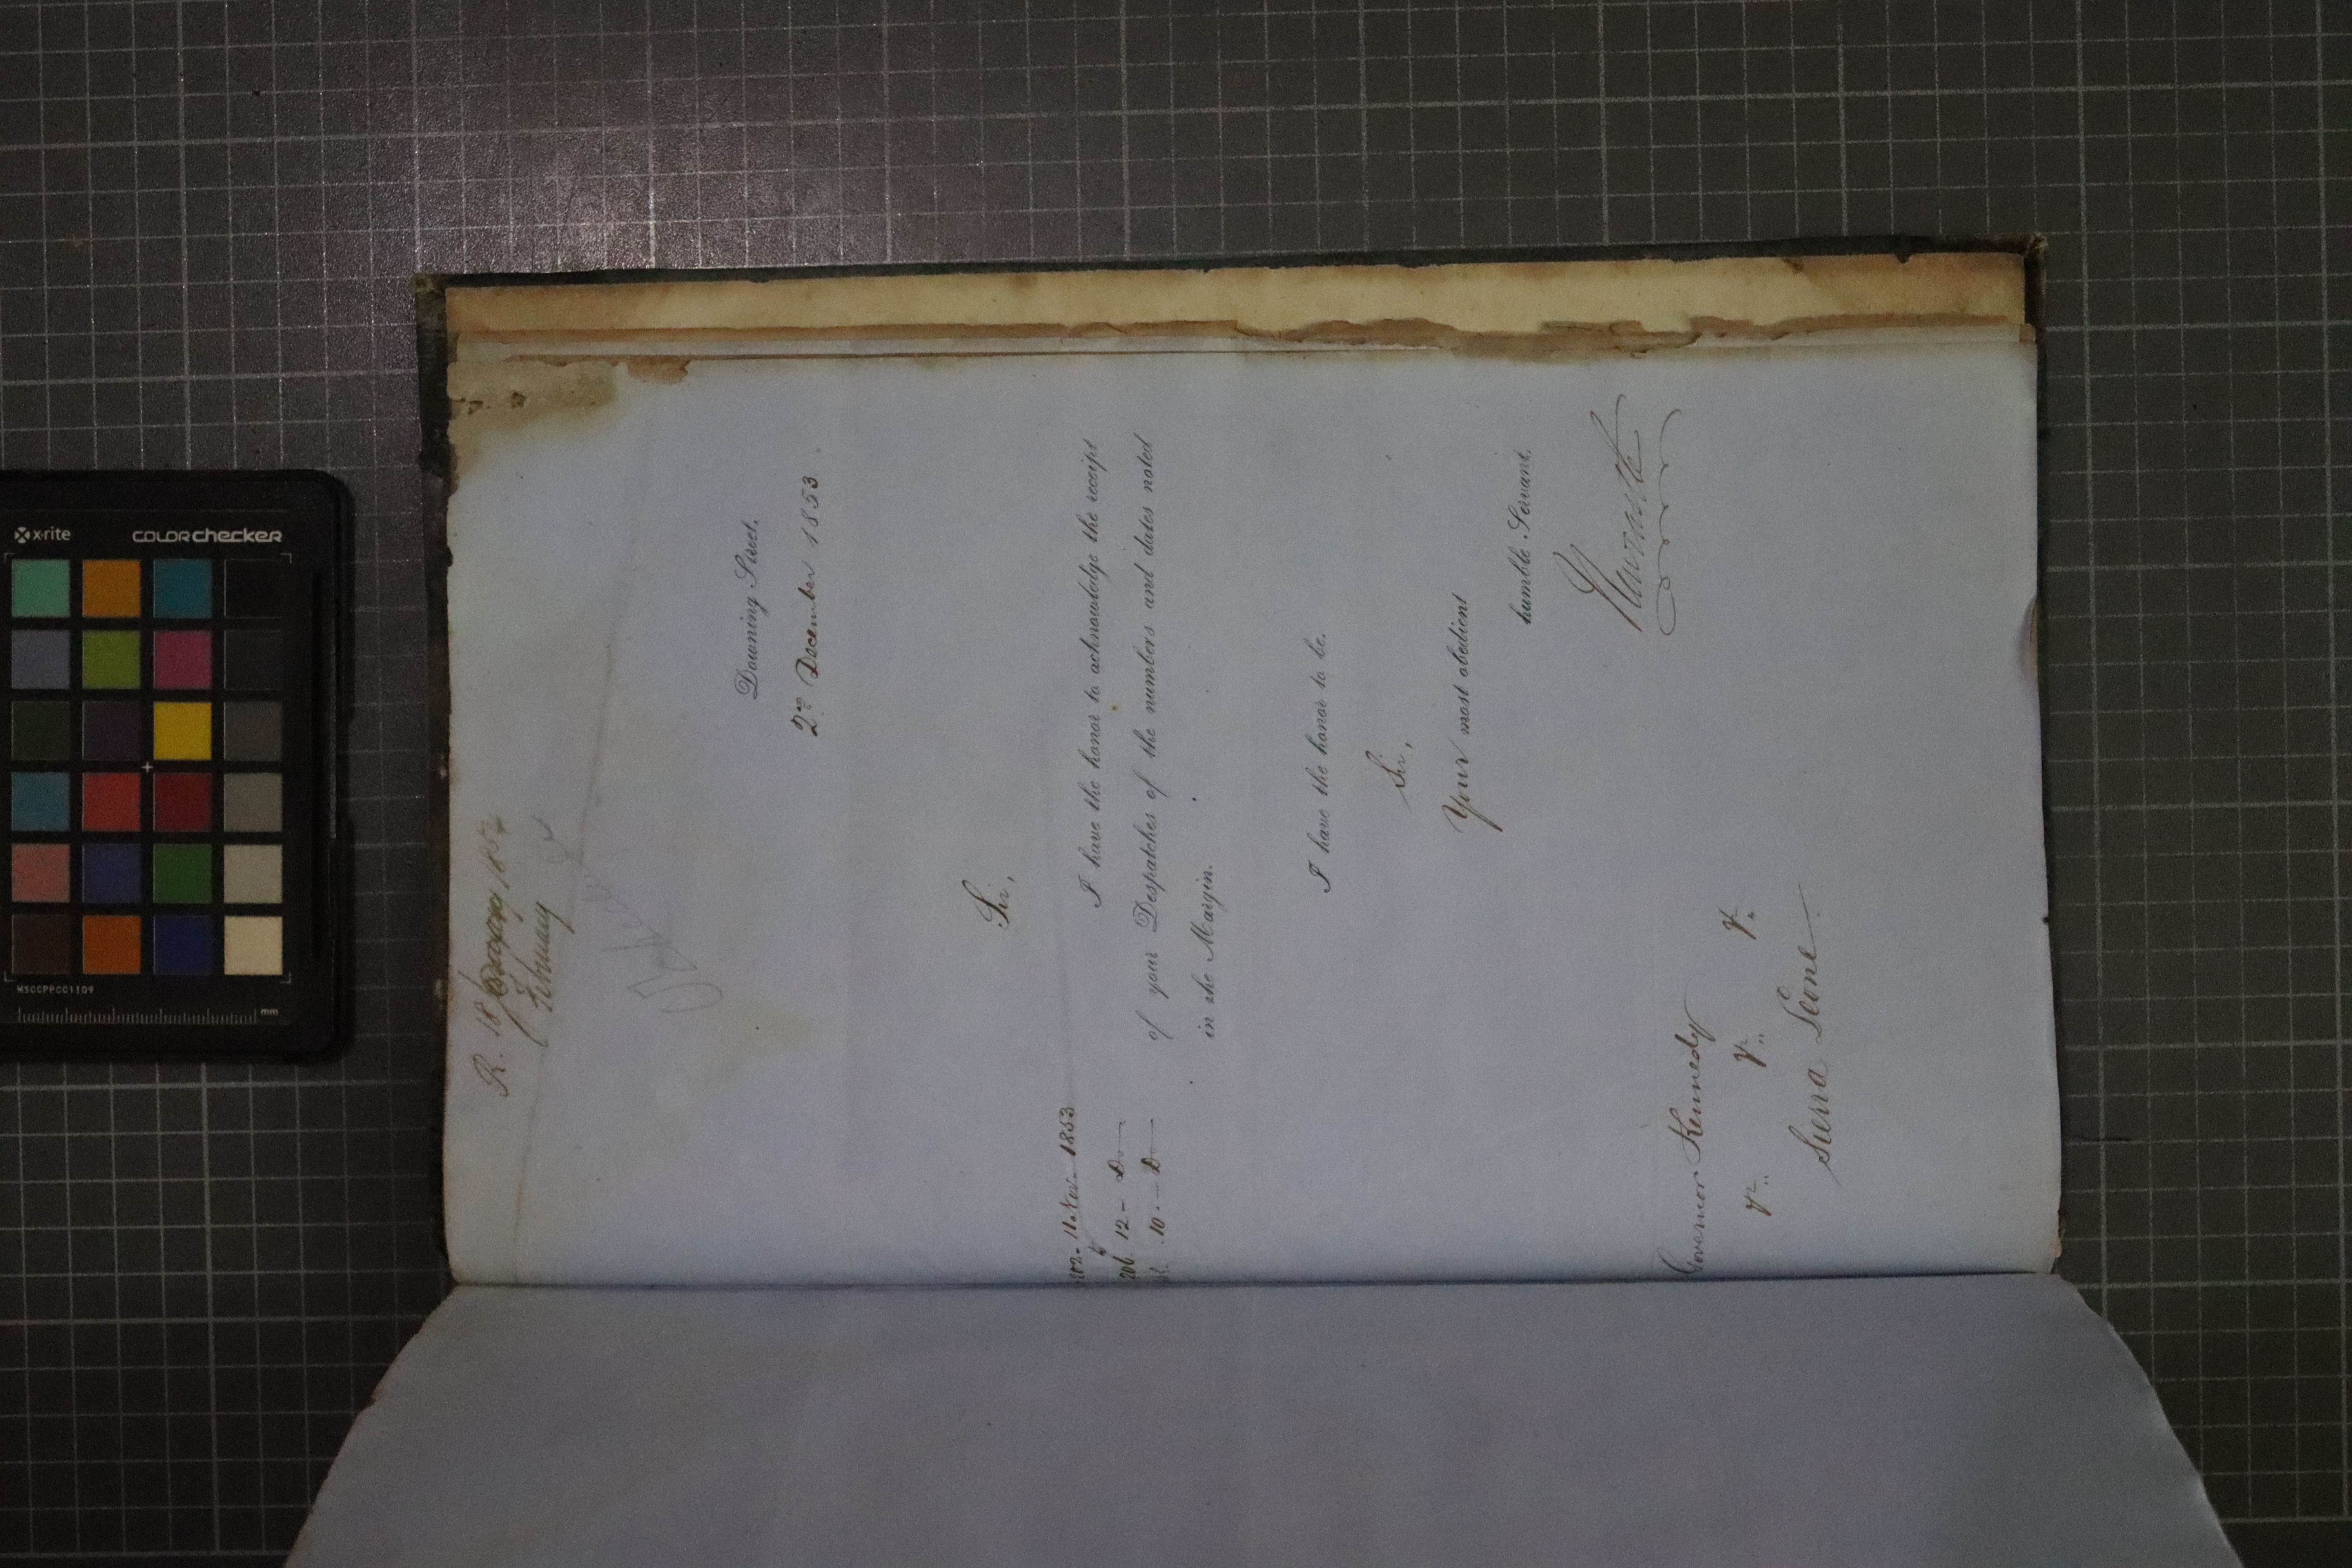 R. 18 1854
February
Downing Street,
2nd December 1853.
Sir,
I have the honor to acknowledge the receipt
of your Despatches of the numbers and dates noted
in the Margin.
202 - 11 Nov - 1853
206 12 - Do
10 - Do
I have the honor to be,
Sir,
Your most obedient
humble Servant,
Newcastle
Governor Kennedy
&c. &c. &c.
Sierra Leone
x-rite
colorchecker
MSCCPPCC1109
mm